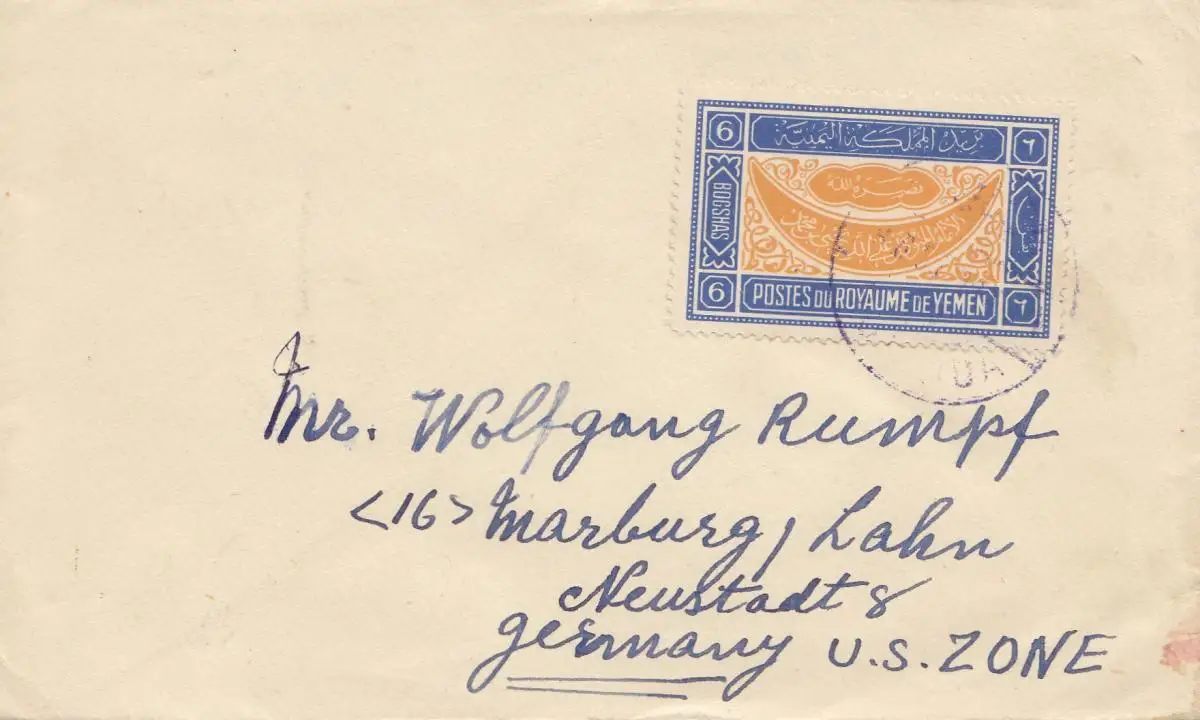 6 بريد المملكة اليمنية ٦
BOGSHAS
نصره الله
6 POSTES DU ROYAUME DE YEMEN ٦
Mr. Wolfgang Rumpf
<16> Marburg / Lahn
Neustadt 8
Germany U.S. ZONE